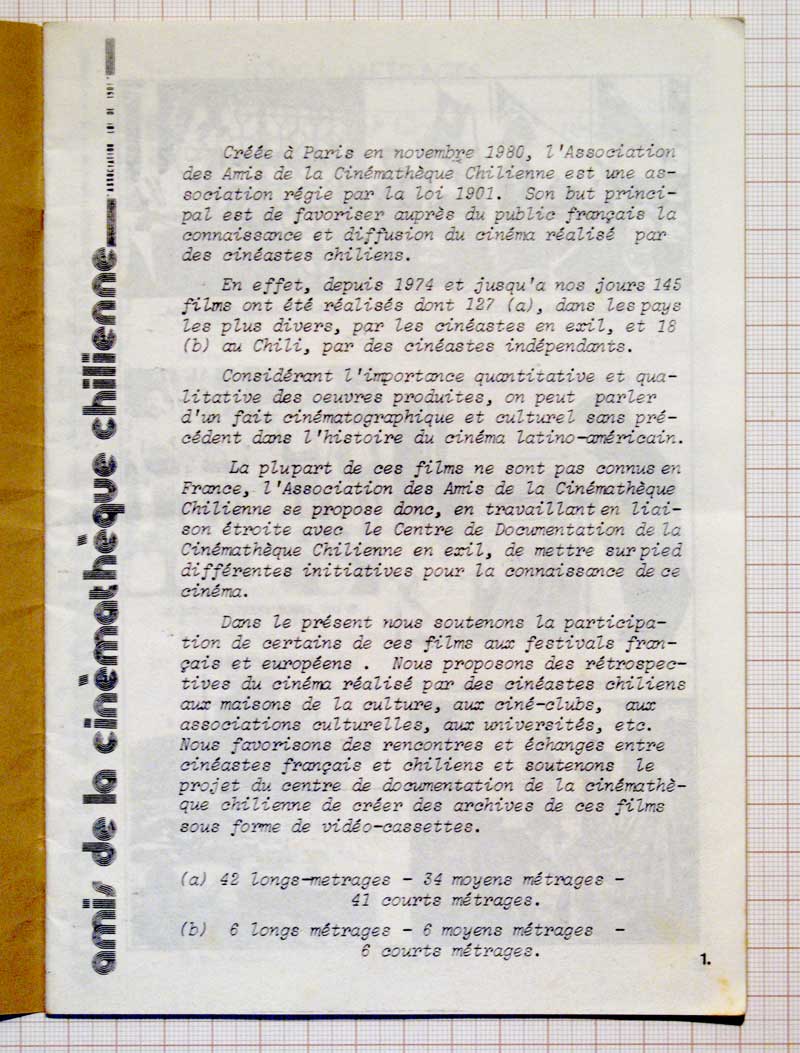 amis de la cinémathèque chilienne
"ASSOCIATION LOI DE 1901"
Créée à Paris en novembre 1980, l'Association
des Amis de la Cinémathèque Chilienne est une as-
sociation régie par la loi 1901. Son but princi-
pal est de favoriser auprès du public français la
connaissance et diffusion du cinéma réalisé par
des cinéastes chiliens.
En effet, depuis 1974 et jusqu'a nos jours 145
films ont été réalisés dont 127 (a), dans les pays
les plus divers, par les cinéastes en exil, et 18
(b) au Chili, par des cinéastes indépendants.
Considérant l'importance quantitative et qua-
litative des oeuvres produites, on peut parler
d'un fait cinématographique et culturel sans pré-
cédent dans l'histoire du cinéma latino-américain.
La plupart de ces films ne sont pas connus en
France, l'Association des Amis de la Cinémathèque
Chilienne se propose donc, en travaillant en liai-
son étroite avec le Centre de Documentation de la
Cinémathèque Chilienne en exil, de mettre sur pied
différentes initiatives pour la connaissance de ce
cinéma.
Dans le présent nous soutenons la participa-
tion de certains de ces films aux festivals fran-
çais et européens . Nous proposons des rétrospec-
tives du cinéma réalisé par des cinéastes chiliens
aux maisons de la culture, aux ciné-clubs, aux
associations culturelles, aux universités, etc.
Nous favorisons des rencontres et échanges entre
cinéastes français et chiliens et soutenons le
projet du centre de documentation de la cinémathè-
que chilienne de créer des archives de ces films
sous forme de vidéo-cassettes.
(a) 42 longs-metrages - 34 moyens métrages -
41 courts métrages.
(b) 6 longs métrages - 6 moyens métrages -
6 courts métrages.
1.